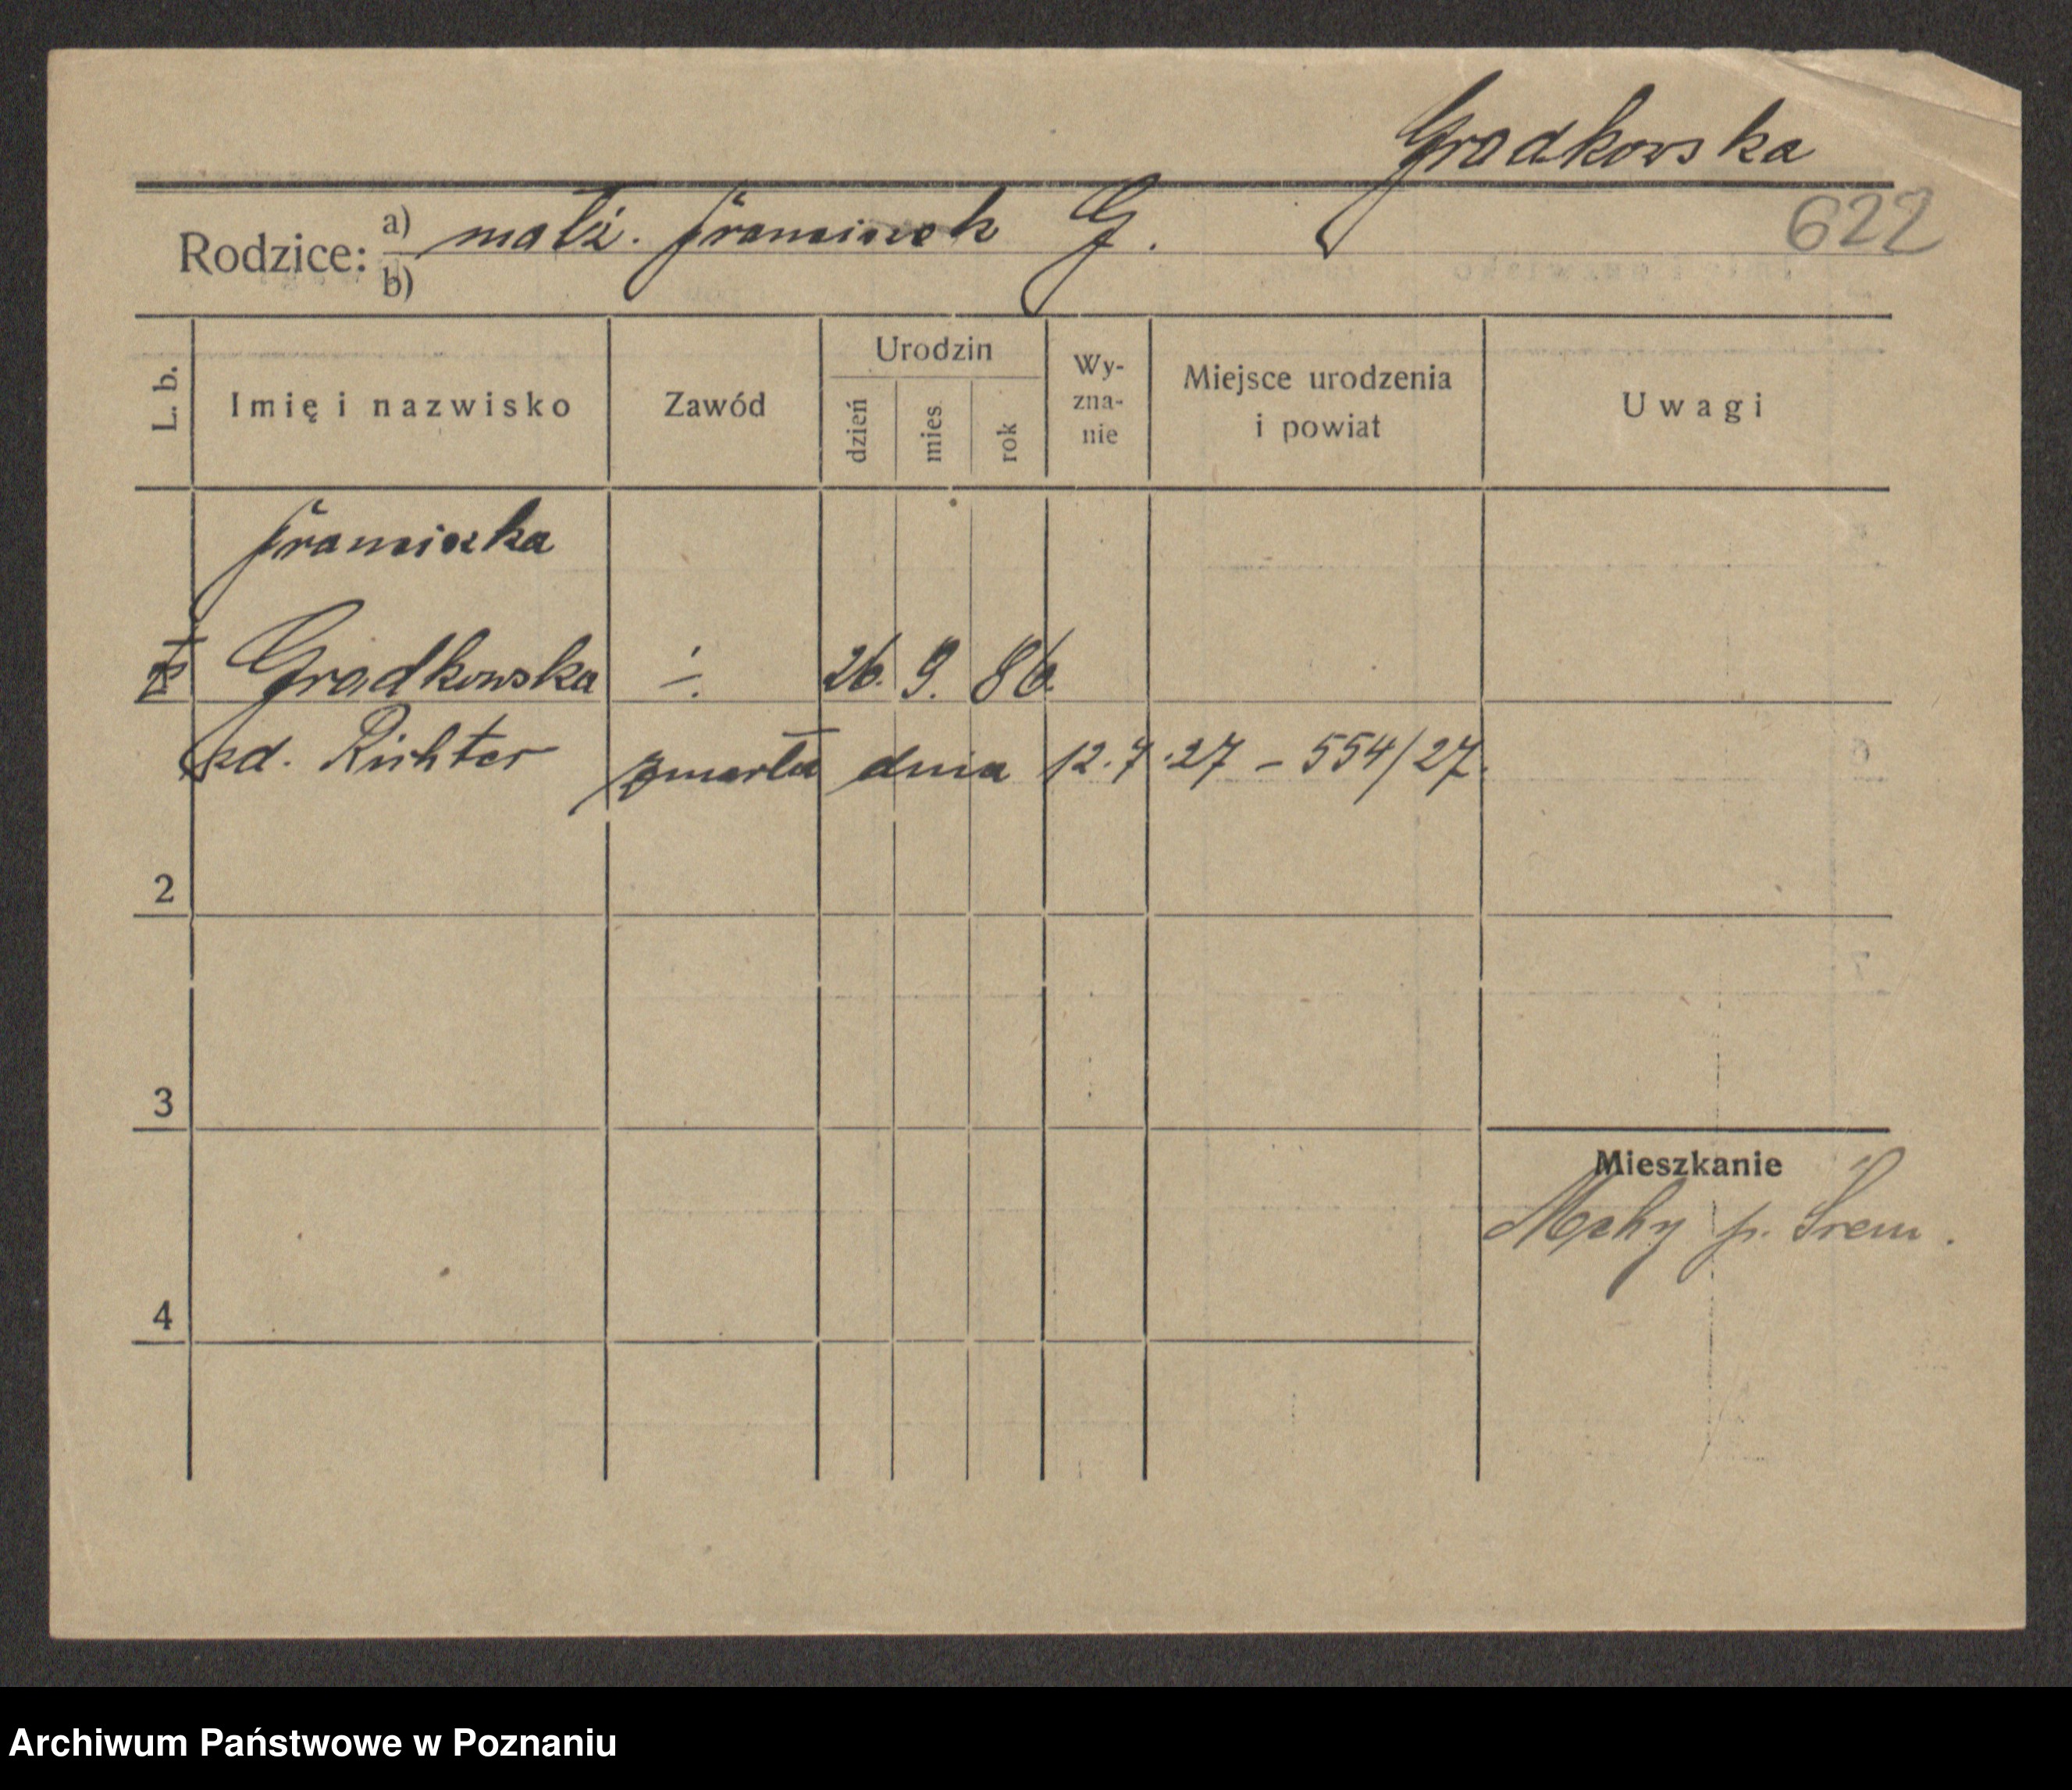 Gradkowska
622
Rodzice: a) małż. Franciszek G.
b)
L. b.
Imię i nazwisko
Zawód
Urodzin
dzień
mies.
rok
Wy-
zna-
nie
Miejsce urodzenia
i powiat
Uwagi
Franciszka
Gradkowska ÷ 26. 9. 86.
zd. Richter zmarła dnia 12.7.27 – 554/27.
2
3
Mieszkanie
p. Śrem.
4
Archiwum Państwowe w Poznaniu